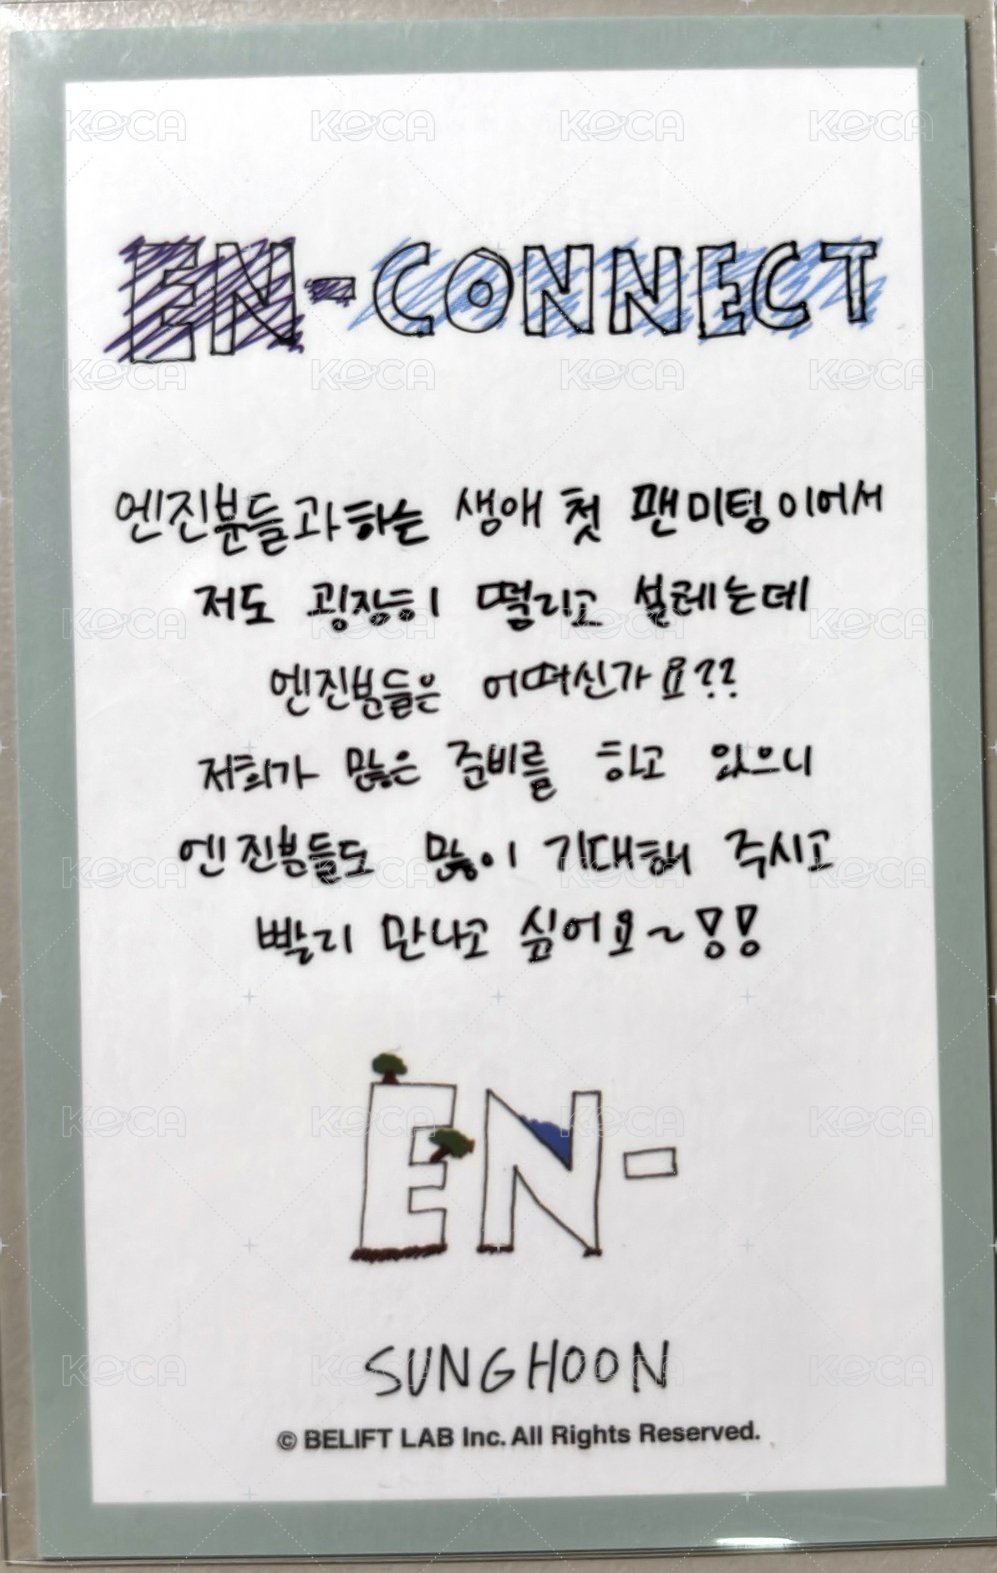 EN-CONNECT
엔진분들과 하는 생애 첫 팬미팅이어서
저도 굉장히 떨리고 설레는데
엔진분들은 어떠신가요??
저희가 많은 준비를 하고 있으니
엔진분들도 많이 기대해 주시고
빨리 만나고 싶어요~!!
EN-
SUNGHOON
© BELIFT LAB Inc. All Rights Reserved.
KOCA